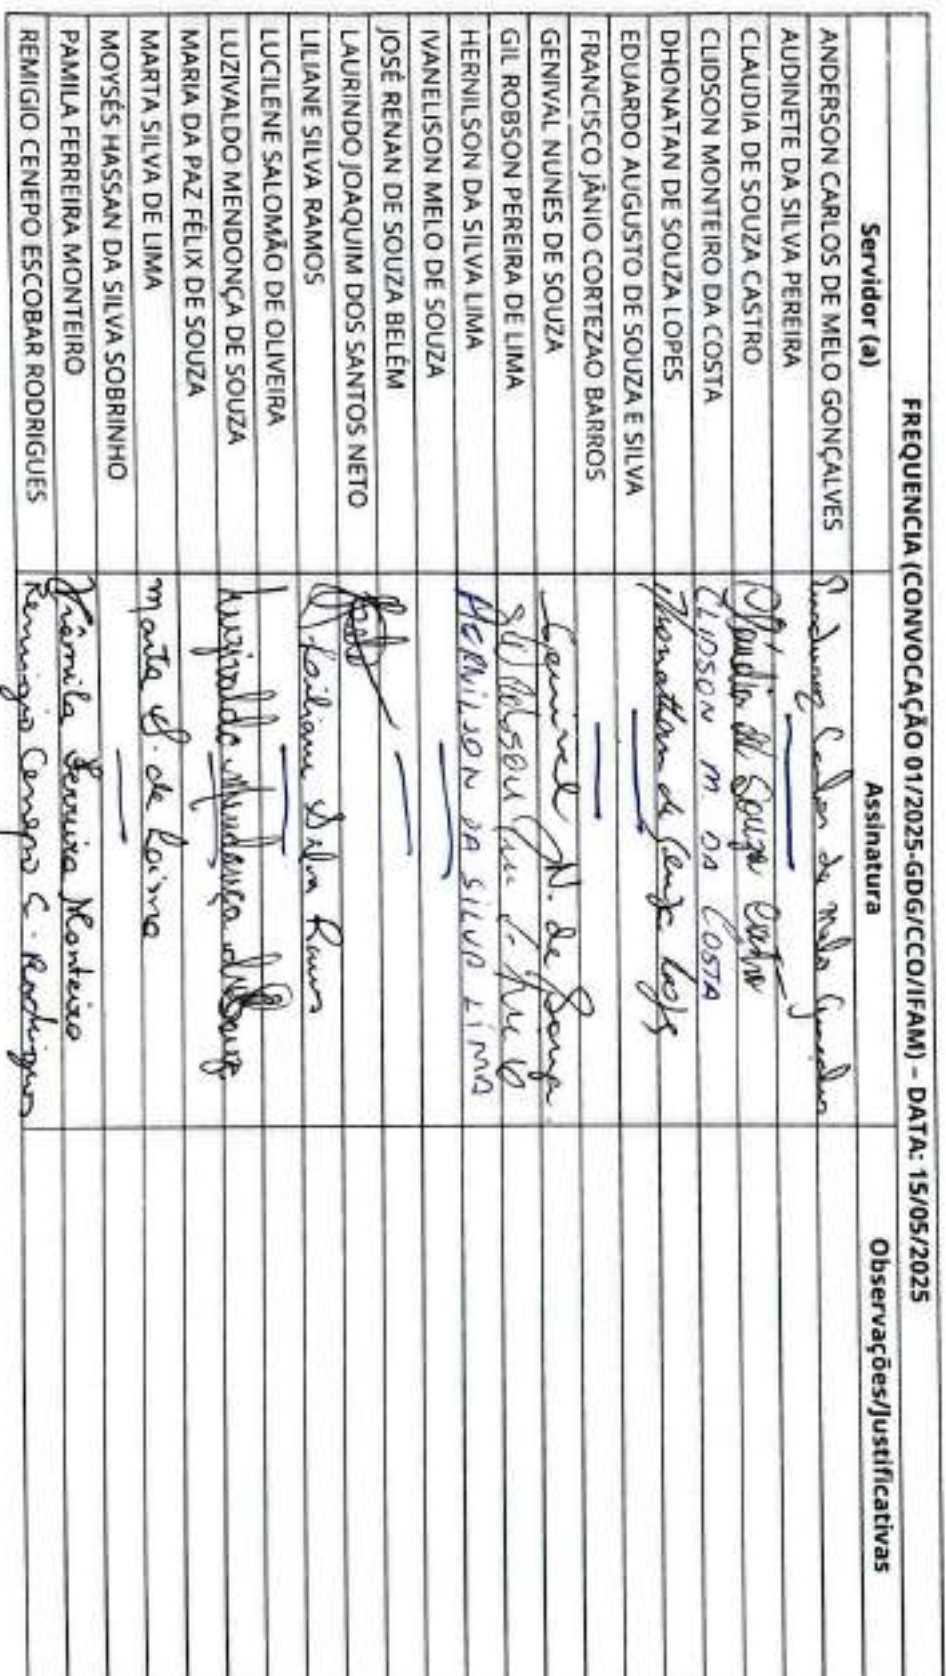 FREQUENCIA (CONVOCAÇÃO 01/2025-GDG/CCO/IFAM) – DATA: 15/05/2025
Servidor (a) Assinatura Observações/Justificativas
ANDERSON CARLOS DE MELO GONÇALVES Anderson Carlos de Melo Gonçalves
AUDINETE DA SILVA PEREIRA
CLAUDIA DE SOUZA CASTRO Cláudia de Souza Castro
CLIDSON MONTEIRO DA COSTA CLIDSON M. DA COSTA
DHONATAN DE SOUZA LOPES Dhonatan de Souza Lopes
EDUARDO AUGUSTO DE SOUZA E SILVA
FRANCISCO JÂNIO CORTEZAO BARROS
GENIVAL NUNES DE SOUZA Genival N. de Souza
GIL ROBSON PEREIRA DE LIMA Gil Robson
HERNILSON DA SILVA LIMA HERNILSON DA SILVA LIMA
IVANELISON MELO DE SOUZA
JOSÉ RENAN DE SOUZA BELÉM
LAURINDO JOAQUIM DOS SANTOS NETO
LILIANE SILVA RAMOS Liliane Silva Ramos
LUCILENE SALOMÃO DE OLIVEIRA
LUZIVALDO MENDONÇA DE SOUZA Luzivaldo Mendonça de Souza
MARIA DA PAZ FÉLIX DE SOUZA
MARTA SILVA DE LIMA Marta S. de Lima
MOYSÉS HASSAN DA SILVA SOBRINHO
PAMILA FERREIRA MONTEIRO Pâmila Ferreira Monteiro
REMIGIO CENEPO ESCOBAR RODRIGUES Remigio Cenepo E. Rodrigues